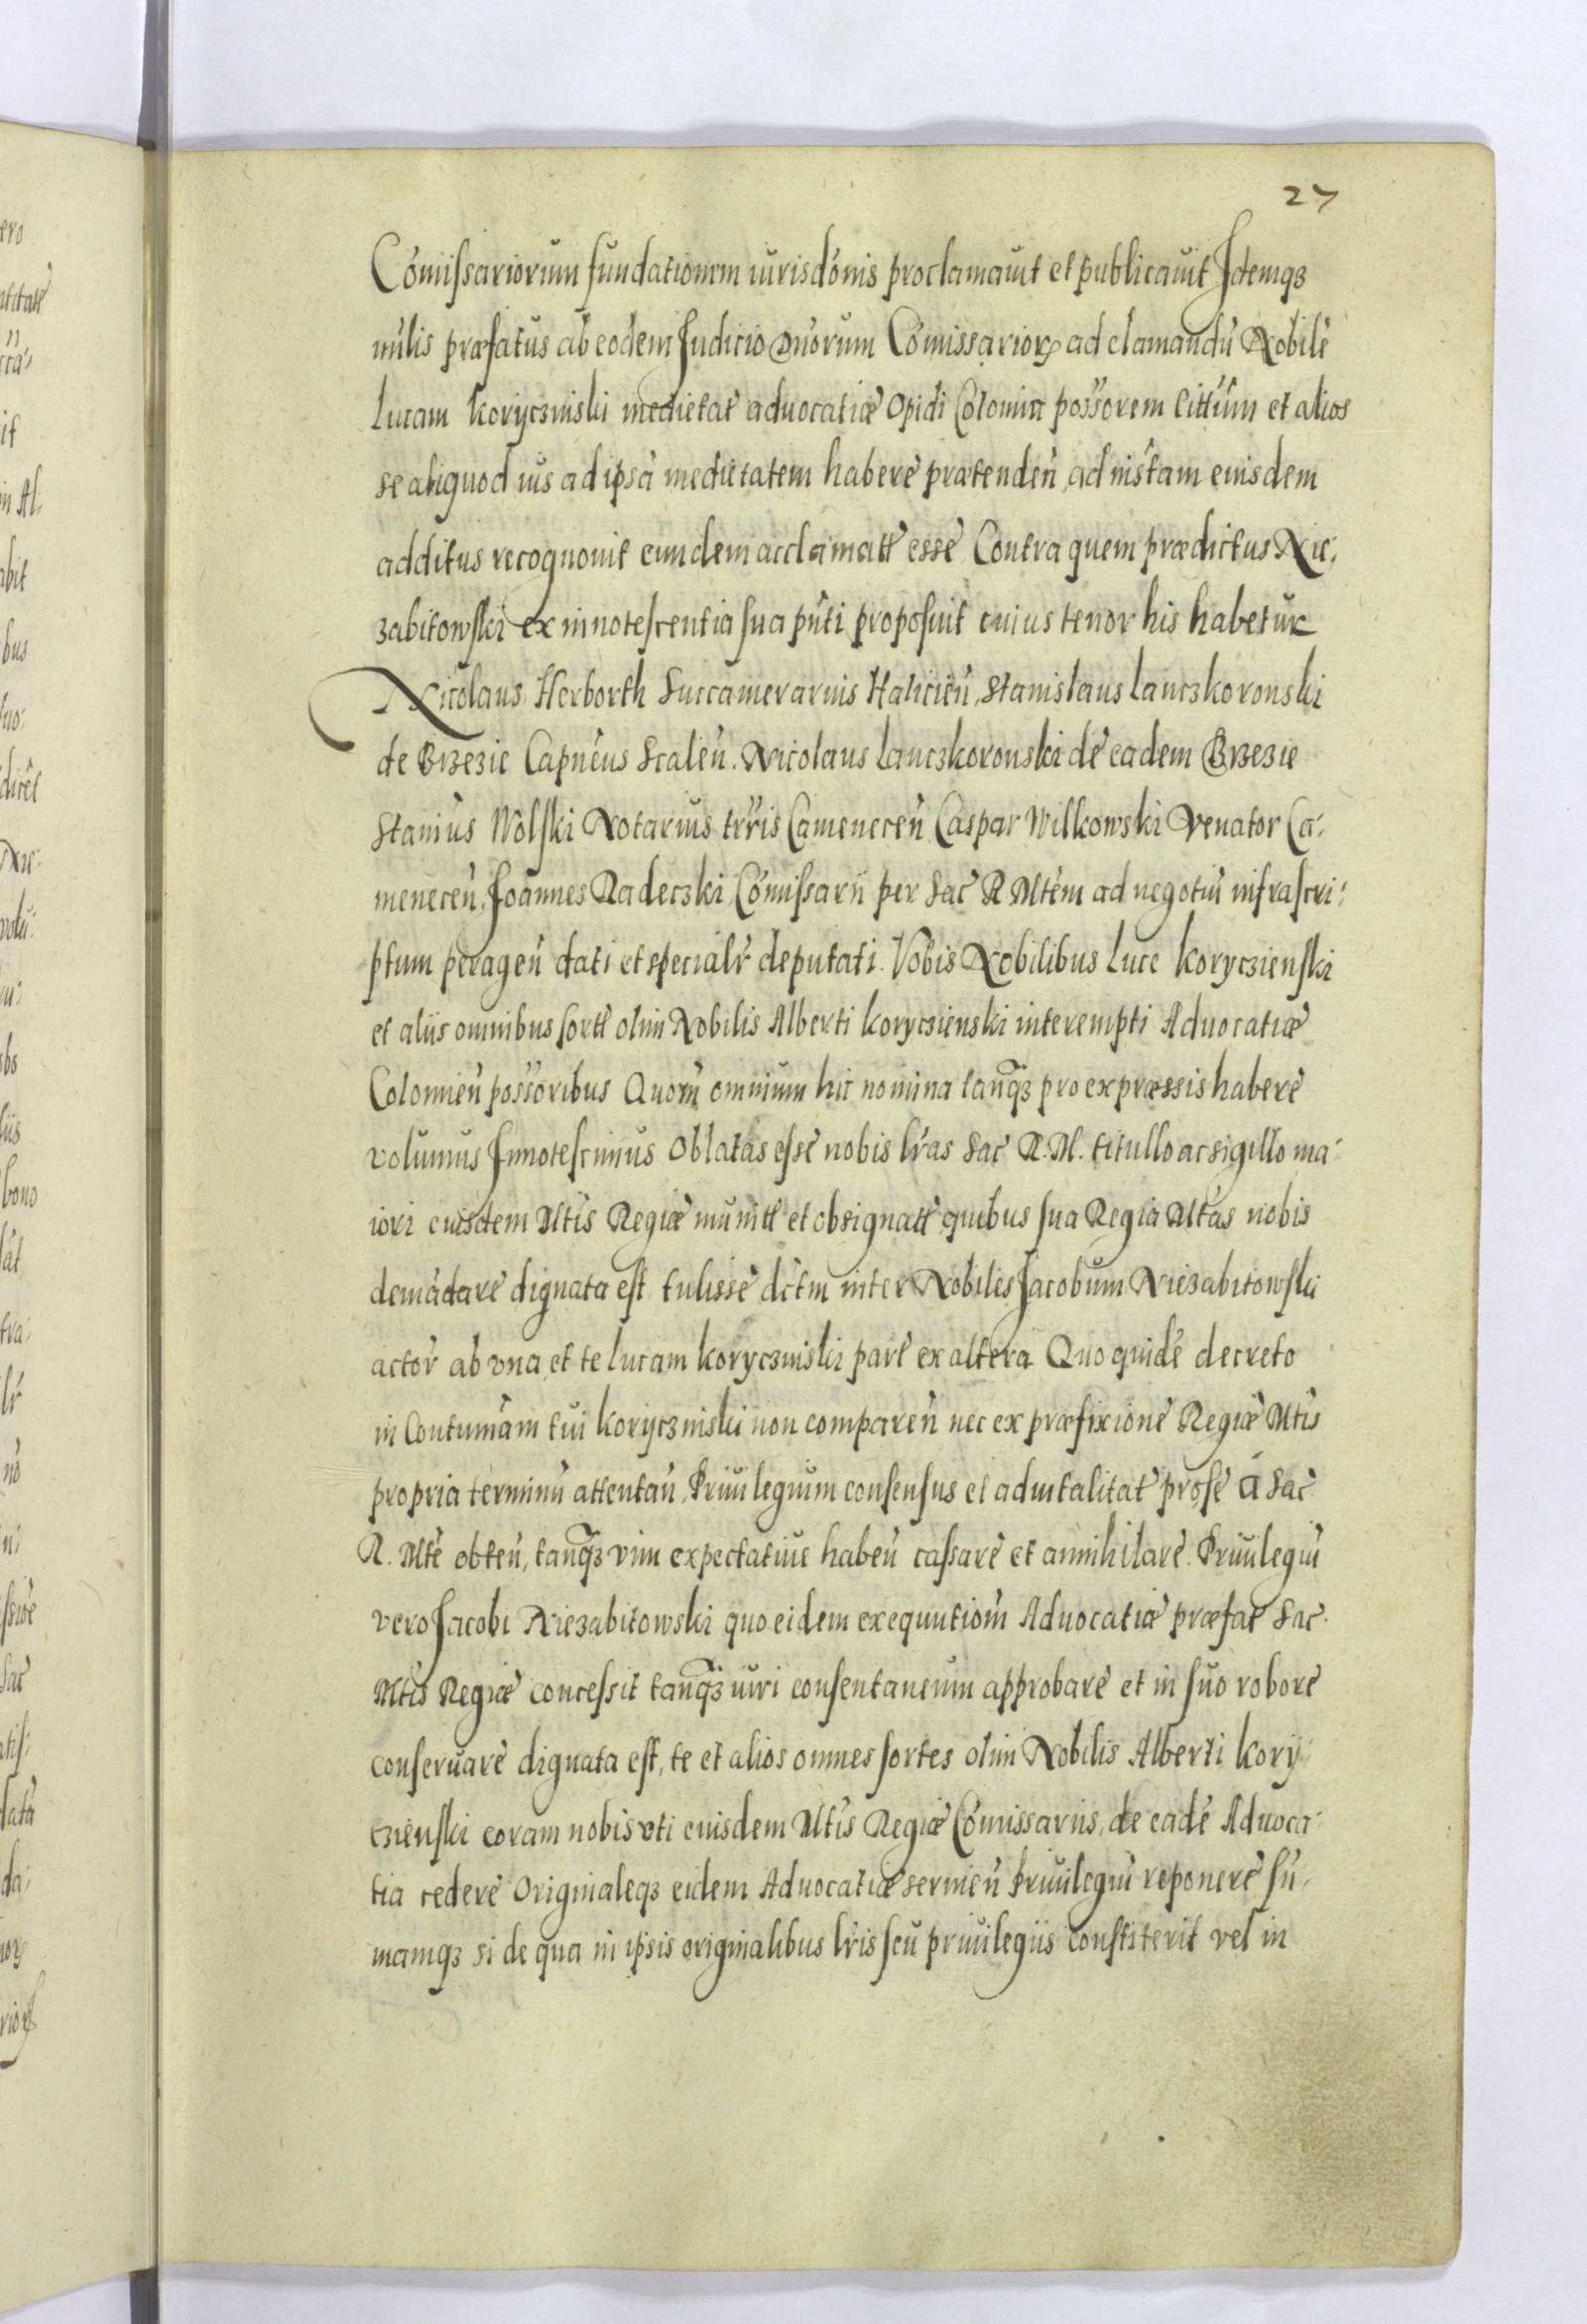 27
Comissariorum fundationem iurisdonis proclamauit et publicauit Idemqз
mílis præfatus ab eodem Iudicio Dnorum Comissarioꝝ ad clamandũ Nobile
Lucam Koryczinski medietat aduocatiæ Opidi Colomia possorem cittum et alios
se aliquod ius ad ipsã medietatem habere prætenden ad instam eiusdem
additus recognouit eundem acclamatt esse Contra quem prædictus Nie:
zabitowski ex innotescentia sua pnti proposuit cuius tenor his habetur
Nicolaus Herborth Succamerarius Halicien, Stanislaus Lanczkoronski
de Brzezie Capneus Scalen. Nicolaus Lanczkoronski de eadem Brzezie
Stanius Wolski Notarius trris Camenecen Caspar Wilkowski Venator Ca:
menecen, Joannes Radeczki, Comissarii per Sac R Mtem ad negotiũ infrascri:
ptum peragen dati et specialr deputati. Vobis Nobilibus Luce Koryczienski
et aliis omnibus sortt olim Nobilis Alberti Koryczienski interempti Aduocatiæ
Colomien possoribus Quorũ omnium hic nomina tanqз pro expræssis habere
volumus Innotescimus Oblatas esse nobis lras Sac R. M. titullo ac sigillo ma:
iori eiusdem Mtis Regiæ munitt et obsignatt, quibus sua Regia Mtas nobis
demãdare dignata est tulisse dctm inter Nobiles Jacobum Niezabitowski
actor ab vna, et te Lucam Koryczinski parte ex altera Quo quidẽ decreto
in Contumam tui Koryczinski non comparen nec ex præfixione Regiæ Mtis
propria terminũ attentan, Priuilegium consensus et aduitalitat pro se à Sac
R. Mte obten, tanqз vim expectatiue haben cassare et annihilare. Priuilegiũ
vero Jacobi Niezabitowski quo eidem exequutiom Aduocatiæ præfat Sac
Mtis Regiæ concessit tanqз iuri consentaneum approbare et in suo robore
conseruare dignata est, te et alios omnes sortes olim Nobilis Alberti Kory:
czienski coram nobis vti eiusdem Mtis Regiæ Comissariis, de eadẽ Aduoca:
tia cedere Originaleqз eidem Aduocatiæ seruien Priuilegiũ reponere Su:
mamqз si de qua in ipsis originalibus lris seu priuilegiis constiterit vel in